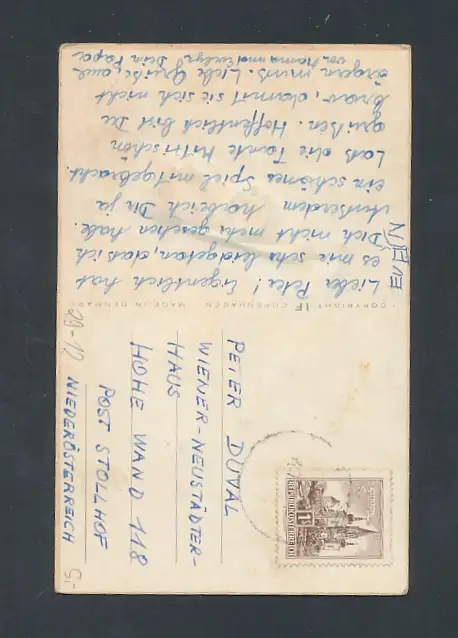 Lieber Peter! Eigentlich hat
es mir sehr leidgetan, dass ich
Dich nicht mehr gesehen habe.
Ausserdem hätte ich Dir ja
ein schönes Spiel mitgebracht.
Lass die Tante schön
grüßen. Hoffentlich bist Du
brav, damit sie sich nicht
ärgern muss. Liebe Grüße, auch
von Mama und Evelyn Dein Papa
COPYRIGHT IF COPENHAGEN · MADE IN DENMARK
PETER DUVAL
WIENER-NEUSTÄDTER-
HAUS
HOHE WAND 118
POST STOLLHOF
NIEDERÖSTERREICH
29-12
REPUBLIK ÖSTERREICH
1S